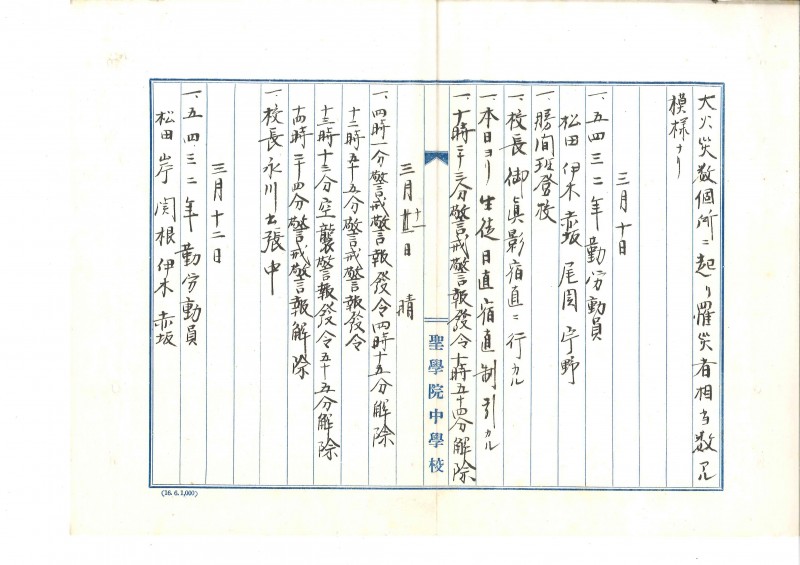 大火災数個所ニ起リ罹災者相当数アル
模様ナリ
三月十日
一、五四三二年勤労動員
松田 伊木 赤坂 尾関 宇野
一、勝間班登校
一、校長御眞影宿直ニ行カル
一、本日ヨリ生徒日直宿直制引カル
一、十時三十三分警戒警報發令十時五十四分解除
聖學院中學校
三月十一日 晴
一、四時一分警戒警報發令四時十五分解除
十二時五十五分警戒警報發令
十三時十三分空襲警報發令五十五分解除
十四時三十四分警戒警報解除
一、校長、永川出張中
三月十二日
一、五、四、三、二年勤労動員
松田 岸 関根 伊木 赤坂
(16. 6. 1,000)